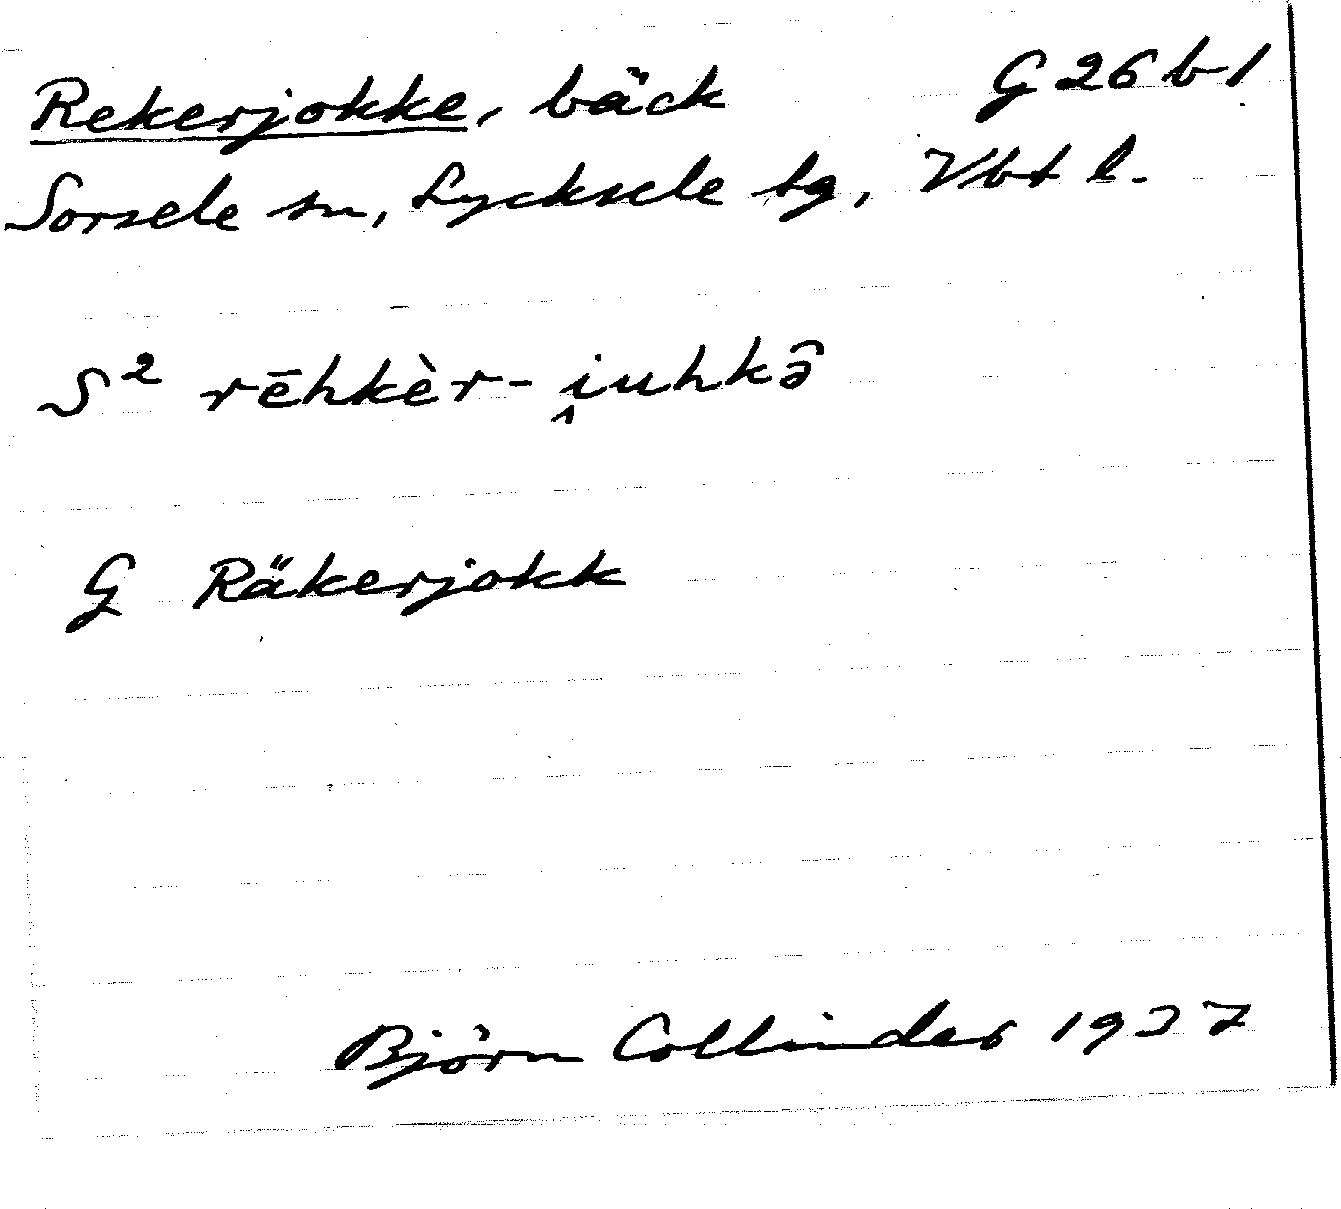 Rekerjokke, bäck G 26 b 1
Sorsele sn, Lycksele tg, Vbt l.
S² rēhkèr-i̭uhkə̂
G Räkerjokk
Björn Collinder 1927